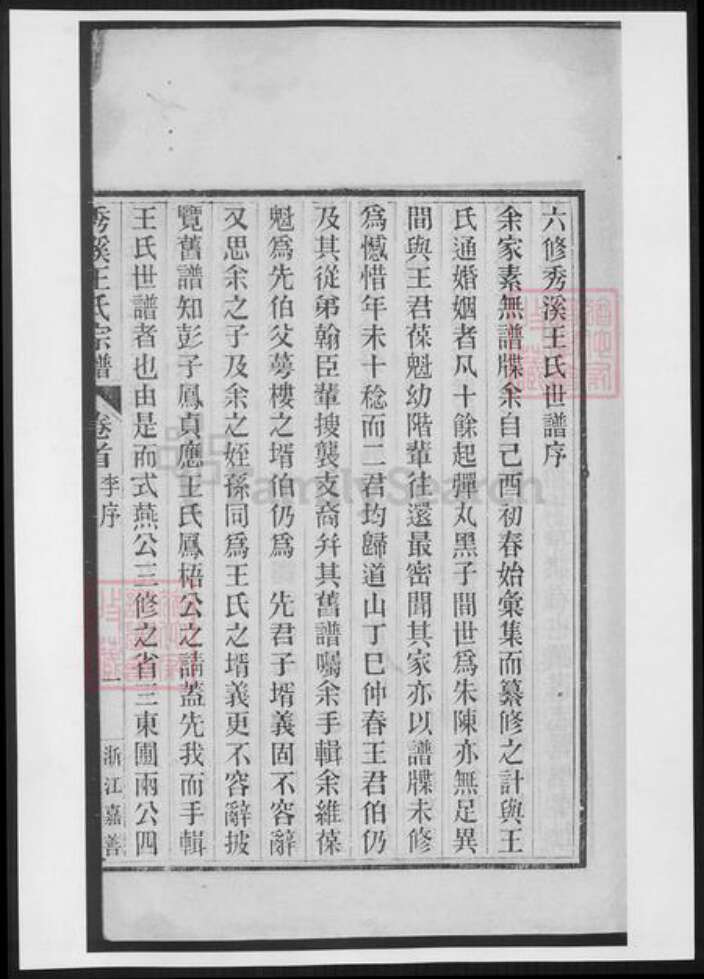 六修秀溪王氏世譜序
余家素無譜牒余自己酉初春始彙集而纂修之計與王
氏通婚姻者凡十餘起彈丸黑子間世爲朱陳亦無足異
間與王君葆魁幼階輩往還最密聞其家亦以譜牒未修
爲憾惜年未十稔而二君均歸道山丁巳仲春王君伯仍
及其從弟翰臣輩搜襲支裔幷其舊譜囑余手輯余維葆
魁爲先伯父蕚樓之壻伯仍爲 先君子壻義固不容辭
又思余之子及余之姪孫同爲王氏之壻義更不容辭披
覽舊譜知彭子鳳貞應王氏鳳梧公之請蓋先我而手輯
王氏世譜者也由是而式燕公三修之省三東圃兩公四
秀溪王氏宗譜 卷首 李序 一 浙江嘉善
FamilySearch